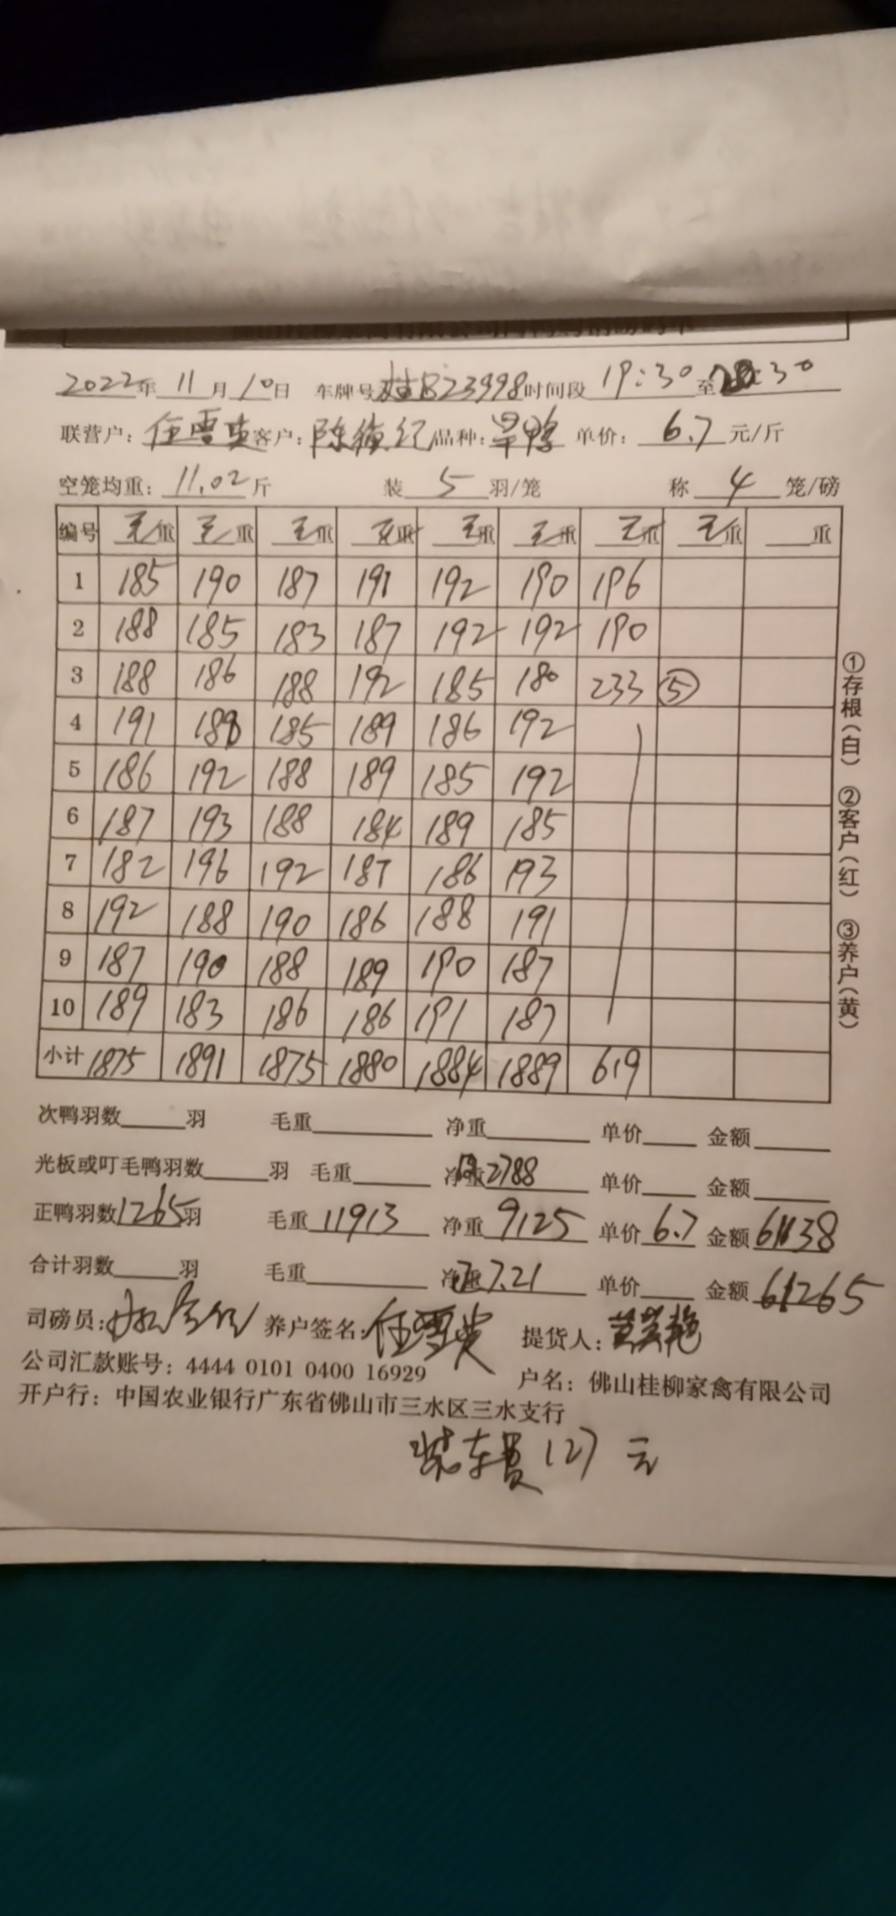 2022年 11月 10日 车牌号 桂B23998 时间段 19:30 至 20:30
联营户: 任雪英 客户: 陈 红 品种: 旱鸭 单价: 6.7 元/斤
空笼均重: 11.02 斤 装 5 羽/笼 称 4 笼/磅
编号 毛重 毛重 毛重 毛重 毛重 毛重 毛重 毛重 重
1 185 190 187 191 192 190 196
2 188 185 183 187 192 192 190
3 188 186 188 192 185 180 233 ⑤
4 191 188 185 189 186 192
5 186 192 188 189 185 192
6 187 193 188 184 189 185
7 182 196 192 187 186 193
8 192 188 190 186 188 191
9 187 190 188 189 190 187
10 189 183 186 186 191 187
小计 1875 1891 1875 1880 1884 1889 619
①存根(白) ②客户(红) ③养户(黄)
次鸭羽数 羽 毛重 净重 单价 金额
光板或叮毛鸭羽数 羽 毛重 净重 2788 单价 金额
正鸭羽数 1265 羽 毛重 11913 净重 9125 单价 6.7 金额 61138
合计羽数 羽 毛重 净重 7.21 单价 金额 61265
司磅员: 养户签名: 任雪英 提货人: 艳
公司汇款账号: 4444 0101 0400 16929 户名: 佛山桂柳家禽有限公司
开户行: 中国农业银行广东省佛山市三水区三水支行
装车费 127 元